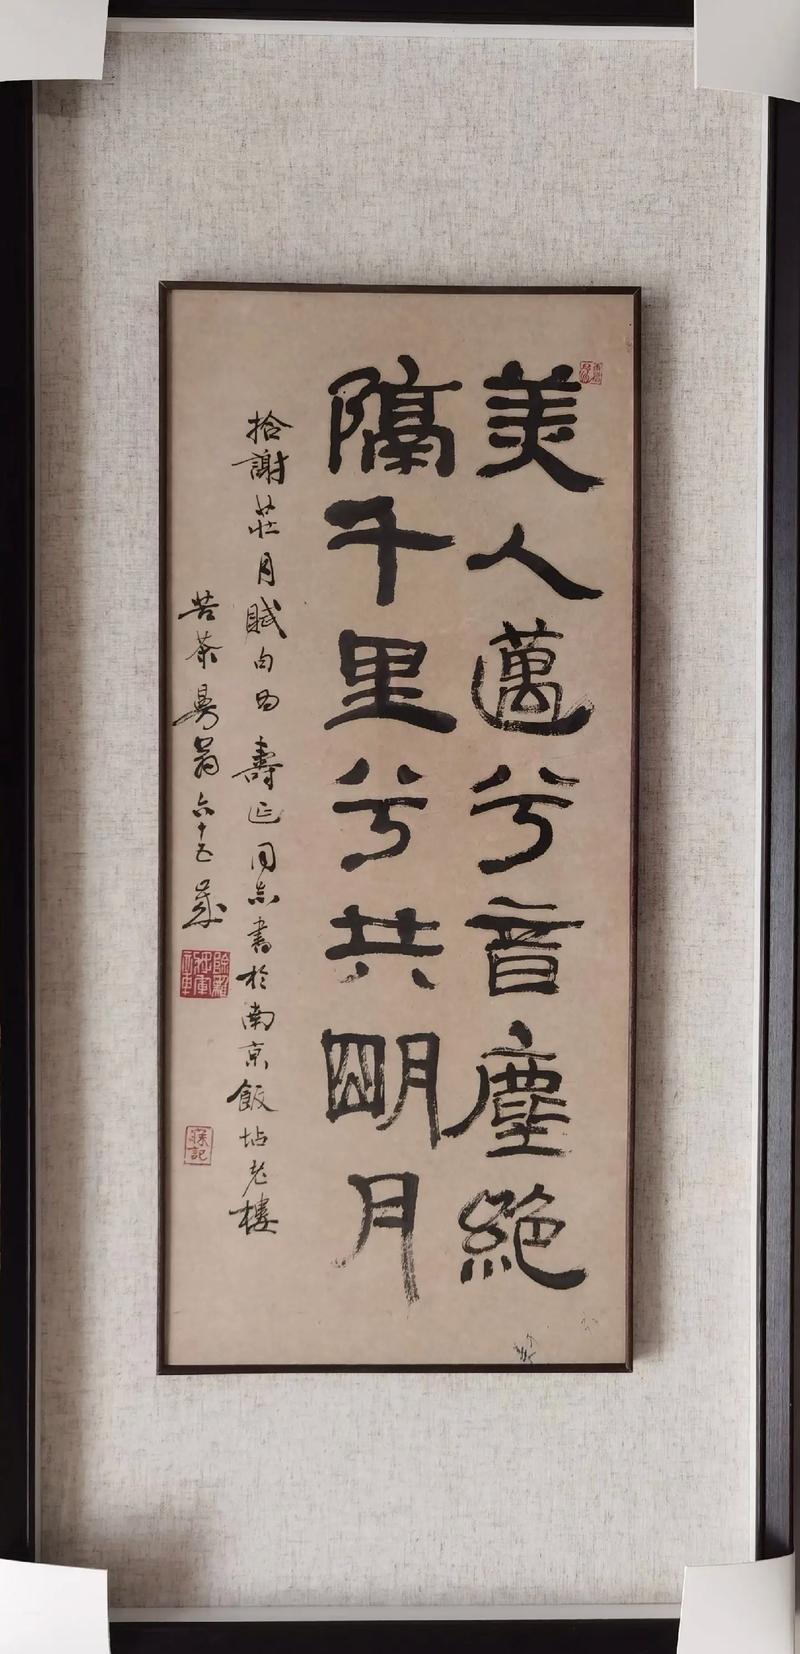 美人邁兮音塵絕
隔千里兮共明月
拾謝莊月賦句為壽延同志書於南京飯坫老樓
苦茶翁六十五歲